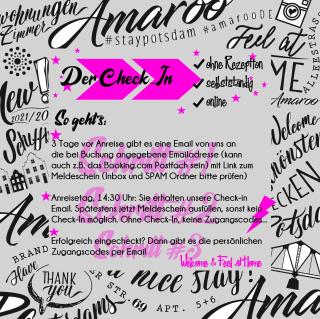 wohnungen
Zimmer
Amaroo
#staypotsdam #amarooDE
Feel at
ME
ALLEESTRASSE
Amaroo
Der Check_In
✓ ohne Rezeption
✓ selbstständig
✓ online
New!
2021/20
So geht's:
Welcome
3 Tage vor Anreise gibt es eine Email von uns an
die bei Buchung angegebene Emailadresse (kann
auch z.B. das Booking.com Postfach sein) mit Link zum
Meldeschein (Inbox und SPAM Ordner bitte prüfen)
Anreisetag, 14:30 Uhr: Sie erhalten unsere Check-in
Email. Spätestens jetzt Meldeschein ausfüllen, sonst kein
Check-In möglich. Ohne Check-In, keine Zugangscodes...
Erfolgreich eingecheckt? Dann gibt es die persönlichen
Zugangscodes per Email.
Email #3
Welcome & Feel at Home
BRAND
Have
THANK
you
a nice stay!
STR. 69
APT. 5+6
Ama